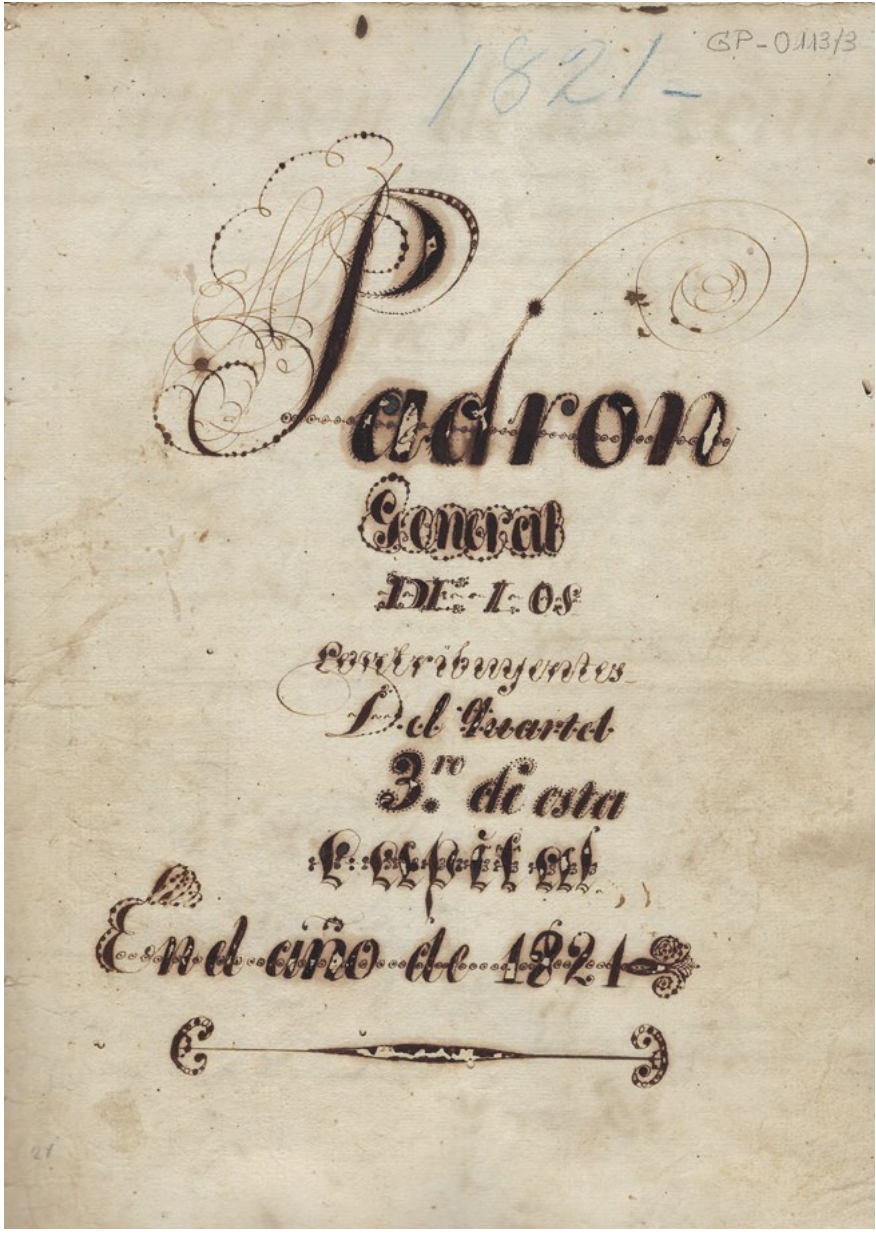 GP-0113/3
1821-
Padron
General
DE LOS
Contribuyentes
Del Quartel
3.ro de esta
Capital
En el año de 1821
21